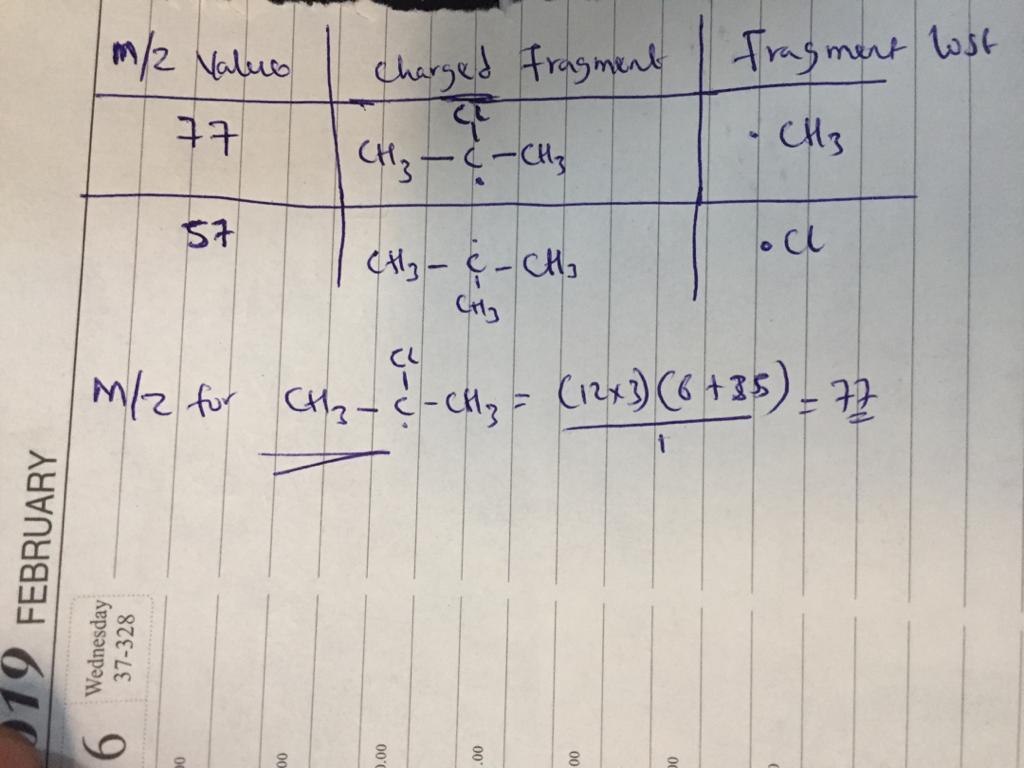 m/z Values Charged Fragment Fragment lost
77 CH3 – C – CH3 · CH3
Cl
·
57 CH3 – C – CH3 • Cl
·
CH3
M/z for CH3 – C – CH3 = (12x3)(6 + 35) = 77
Cl
·
1
019 FEBRUARY
6 Wednesday
37-328
00
00
0.00
.00
00
00